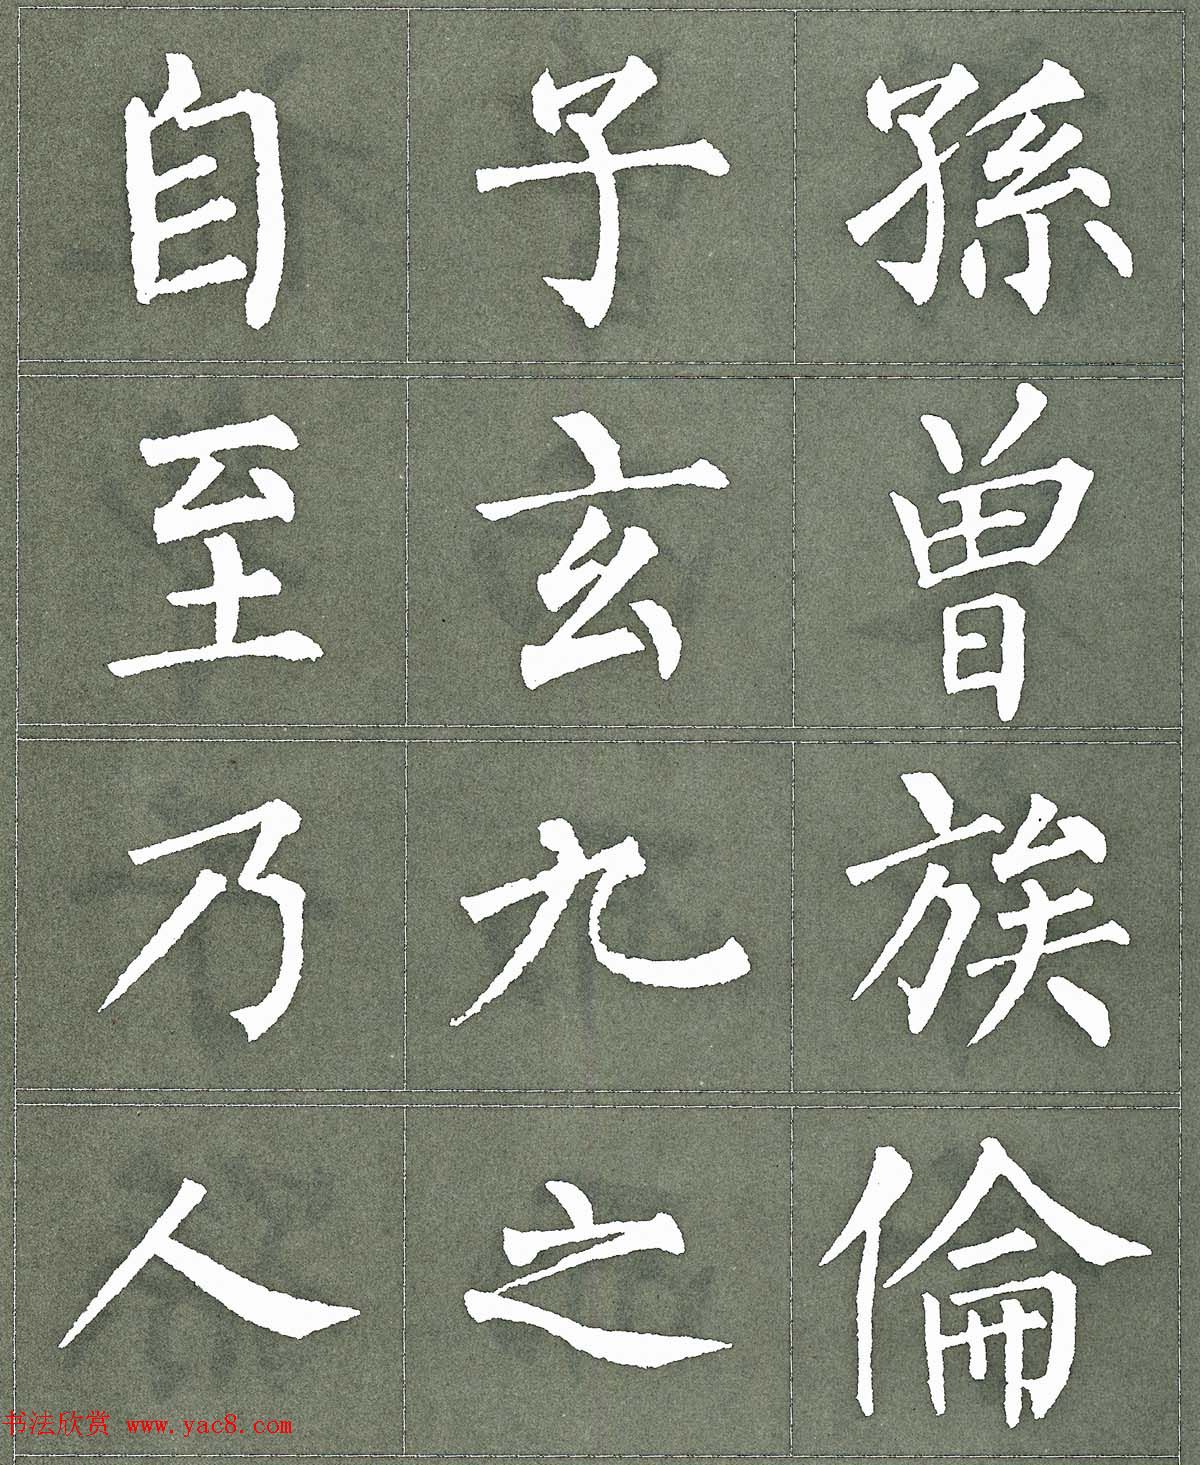 自子孫
至玄曾
乃九族
人之倫
书法欣赏 www.yac8.com